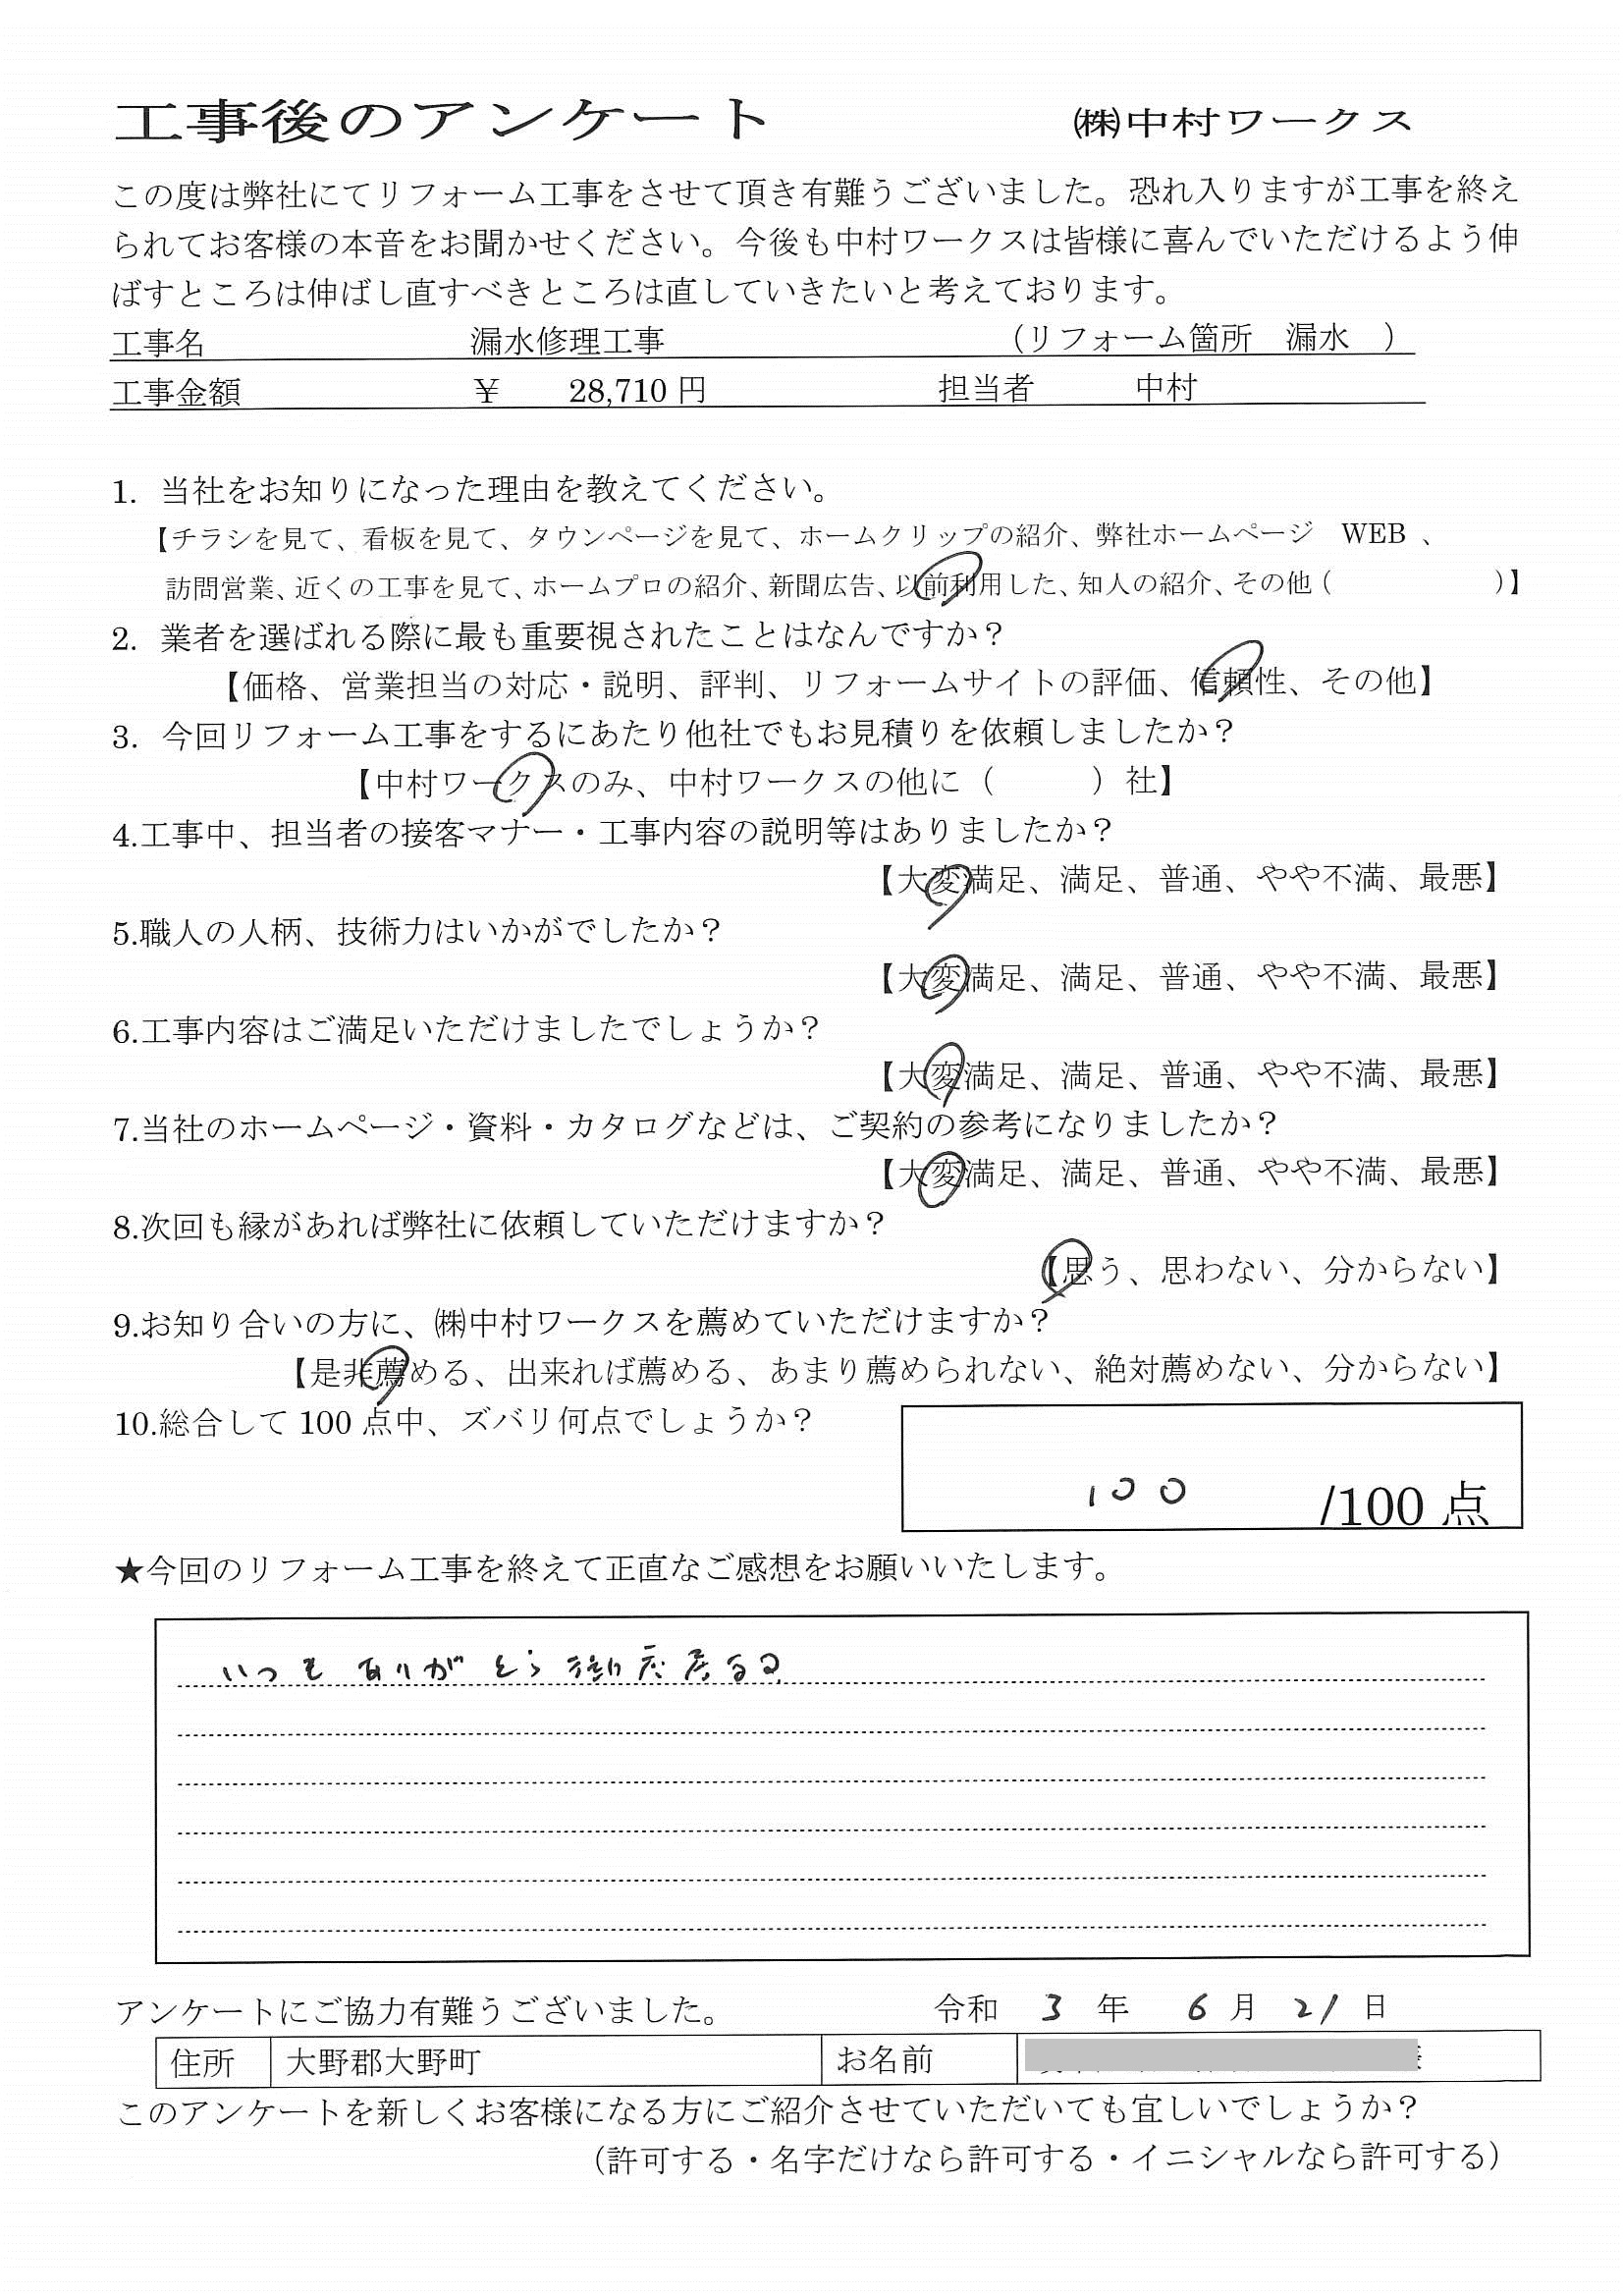 工事後のアンケート ㈱中村ワークス
この度は弊社にてリフォーム工事をさせて頂き有難うございました。恐れ入りますが工事を終え
られてお客様の本音をお聞かせください。今後も中村ワークスは皆様に喜んでいただけるよう伸
ばすところは伸ばし直すべきところは直していきたいと考えております。
工事名 漏水修理工事 （リフォーム箇所 漏水 ）
工事金額 ￥ 28,710 円 担当者 中村
1. 当社をお知りになった理由を教えてください。
【チラシを見て、看板を見て、タウンページを見て、ホームクリップの紹介、弊社ホームページ WEB 、
訪問営業、近くの工事を見て、ホームプロの紹介、新聞広告、以前利用した、知人の紹介、その他（ ）】
2. 業者を選ばれる際に最も重要視されたことはなんですか？
【価格、営業担当の対応・説明、評判、リフォームサイトの評価、信頼性、その他】
3. 今回リフォーム工事をするにあたり他社でもお見積りを依頼しましたか？
【中村ワークスのみ、中村ワークスの他に（ ）社】
4.工事中、担当者の接客マナー・工事内容の説明等はありましたか？
【大変満足、満足、普通、やや不満、最悪】
5.職人の人柄、技術力はいかがでしたか？
【大変満足、満足、普通、やや不満、最悪】
6.工事内容はご満足いただけましたでしょうか？
【大変満足、満足、普通、やや不満、最悪】
7.当社のホームページ・資料・カタログなどは、ご契約の参考になりましたか？
【大変満足、満足、普通、やや不満、最悪】
8.次回も縁があれば弊社に依頼していただけますか？
【思う、思わない、分からない】
9.お知り合いの方に、㈱中村ワークスを薦めていただけますか？
【是非薦める、出来れば薦める、あまり薦められない、絶対薦めない、分からない】
10.総合して 100 点中、ズバリ何点でしょうか？
100 /100 点
★今回のリフォーム工事を終えて正直なご感想をお願いいたします。
いつも ありがとう
アンケートにご協力有難うございました。 令和 3 年 6 月 21 日
住所 大野郡大野町 お名前
このアンケートを新しくお客様になる方にご紹介させていただいても宜しいでしょうか？
（許可する・名字だけなら許可する・イニシャルなら許可する）